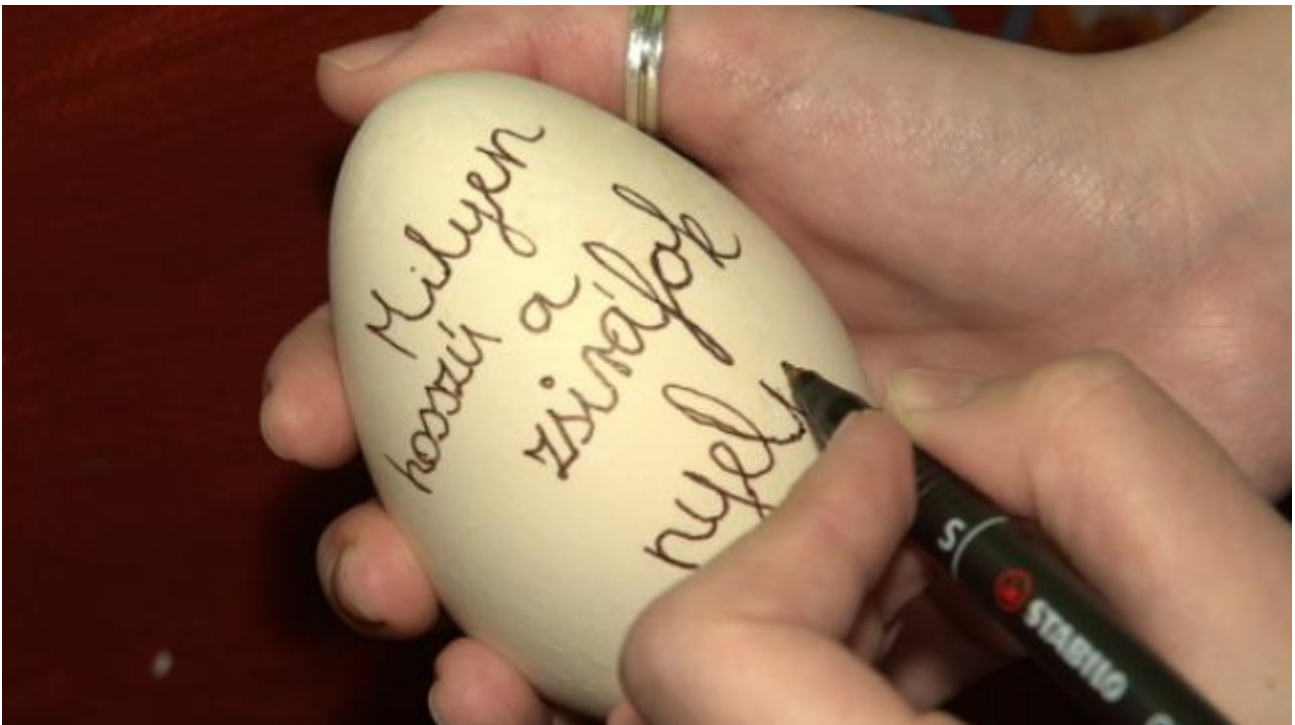 Milyen
hosszú a
zsiráfok
nyelv
S STABILO